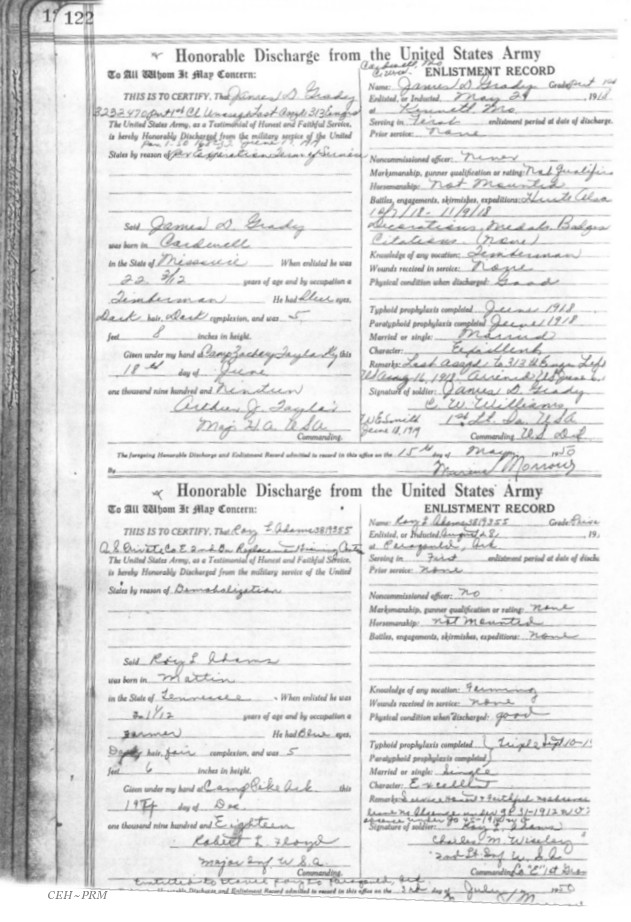 122
Honorable Discharge from the United States Army
To All Whom It May Concern:
THIS IS TO CERTIFY, That James D. Grady
3232470 Pvt 1st Cl
The United States Army, as a Testimonial of Honest and Faithful Service,
is hereby Honorably Discharged from the military service of the United
States by reason of Expiration Term of Service
Said James D. Grady
was born in Cardwell
in the State of Missouri When enlisted he was
22 2/12 years of age and by occupation a
Timberman He had Blue eyes,
Dark hair, Dark complexion, and was 5
feet 8 inches in height.
Given under my hand Camp Zachary Taylor Ky this
18th day of June
one thousand nine hundred and Nineteen
Arthur J. Taylor
Maj. F.A. USA
Commanding.
Cardwell, Mo
ENLISTMENT RECORD
Name: James D. Grady Grade:
Enlisted, or Inducted, May 29 1918
at Kennett Mo.
Serving in First enlistment period at date of discharge
Prior service: None
Noncommissioned officer: Never
Marksmanship, gunner qualification or rating: Not Qualified
Horsemanship: Not Mounted
Battles, engagements, skirmishes, expeditions:
- 11/9/18
Decorations, Medals Badges
Citations (None)
Knowledge of any vocation: Timberman
Wounds received in service: None
Physical condition when discharged: Good
Typhoid prophylaxis completed June 1918
Paratyphoid prophylaxis completed June 1918
Married or single: Married
Character: Excellent
Remarks: Last assgd to 313th Left
Arrived US June
Signature of soldier: James D. Grady
C. W. Williams
W E Smith 1st Lt. USA
June 18, 1919 Commanding
The foregoing Honorable Discharge and Enlistment Record admitted to record in this office on the 15th day of May 1950
By Morrow
Honorable Discharge from the United States Army
To All Whom It May Concern:
THIS IS TO CERTIFY, That Roy L Adams 3819355
Private Co E 2nd Bn Replacement
The United States Army, as a Testimonial of Honest and Faithful Service,
is hereby Honorably Discharged from the military service of the United
States by reason of Demobilization
Said Roy L Adams
was born in Martin
in the State of Tennessee When enlisted he was
21 1/12 years of age and by occupation a
Farmer He had Blue eyes,
hair, fair complexion, and was 5
feet 6 inches in height.
Given under my hand Camp Pike Ark this
day of Dec
one thousand nine hundred and Eighteen
Robert L. Floyd
Major Inf. U.S.A.
ENLISTMENT RECORD
Name: Roy L Adams 3819355 Grade:
Enlisted, or Inducted, August 28 , 19
at Paragould, Ark
Serving in First enlistment period at date of discha
Prior service: None
Noncommissioned officer: No
Marksmanship, gunner qualification or rating: None
Horsemanship: Not Mounted
Battles, engagements, skirmishes, expeditions: None
Knowledge of any vocation: Farming
Wounds received in service: None
Physical condition when discharged: good
Typhoid prophylaxis completed Triple Sept 10-1
Paratyphoid prophylaxis completed
Married or single: Single
Character: Excellent
Remarks: Service Honest & Faithful no absence
Signature of soldier: Roy L. Adams
Charles M.
2nd Lt Inf U.S.A.
Commanding Co "E" 1st
Entitled to travel pay to Paragould, Ark
Honorable Discharge and Enlistment Record admitted to record in this office on the 3rd day of July 1950
CEH~PRM